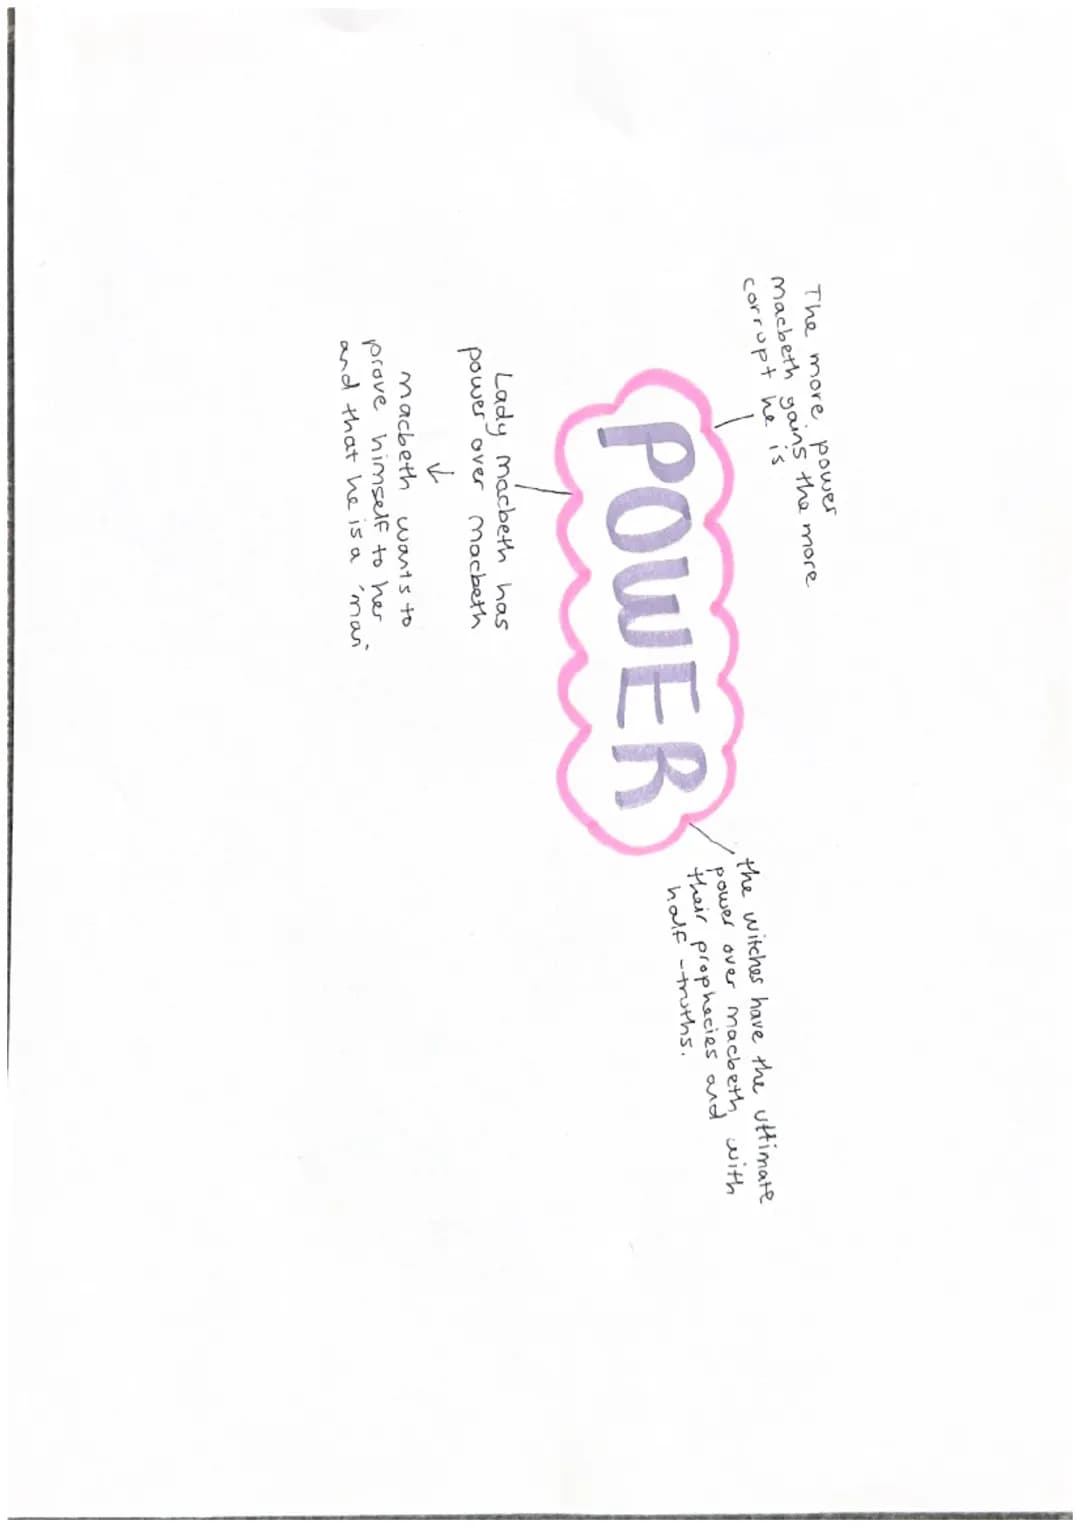 The more power
macbeth gains the more
corrupt he is
POWER
the witches have the ultimate
power over macbeth with
their prophecies and
half-truths.
Lady macbeth has
power over macbeth
↓
macbeth wants to
prove himself to her
and that he is a 'man'